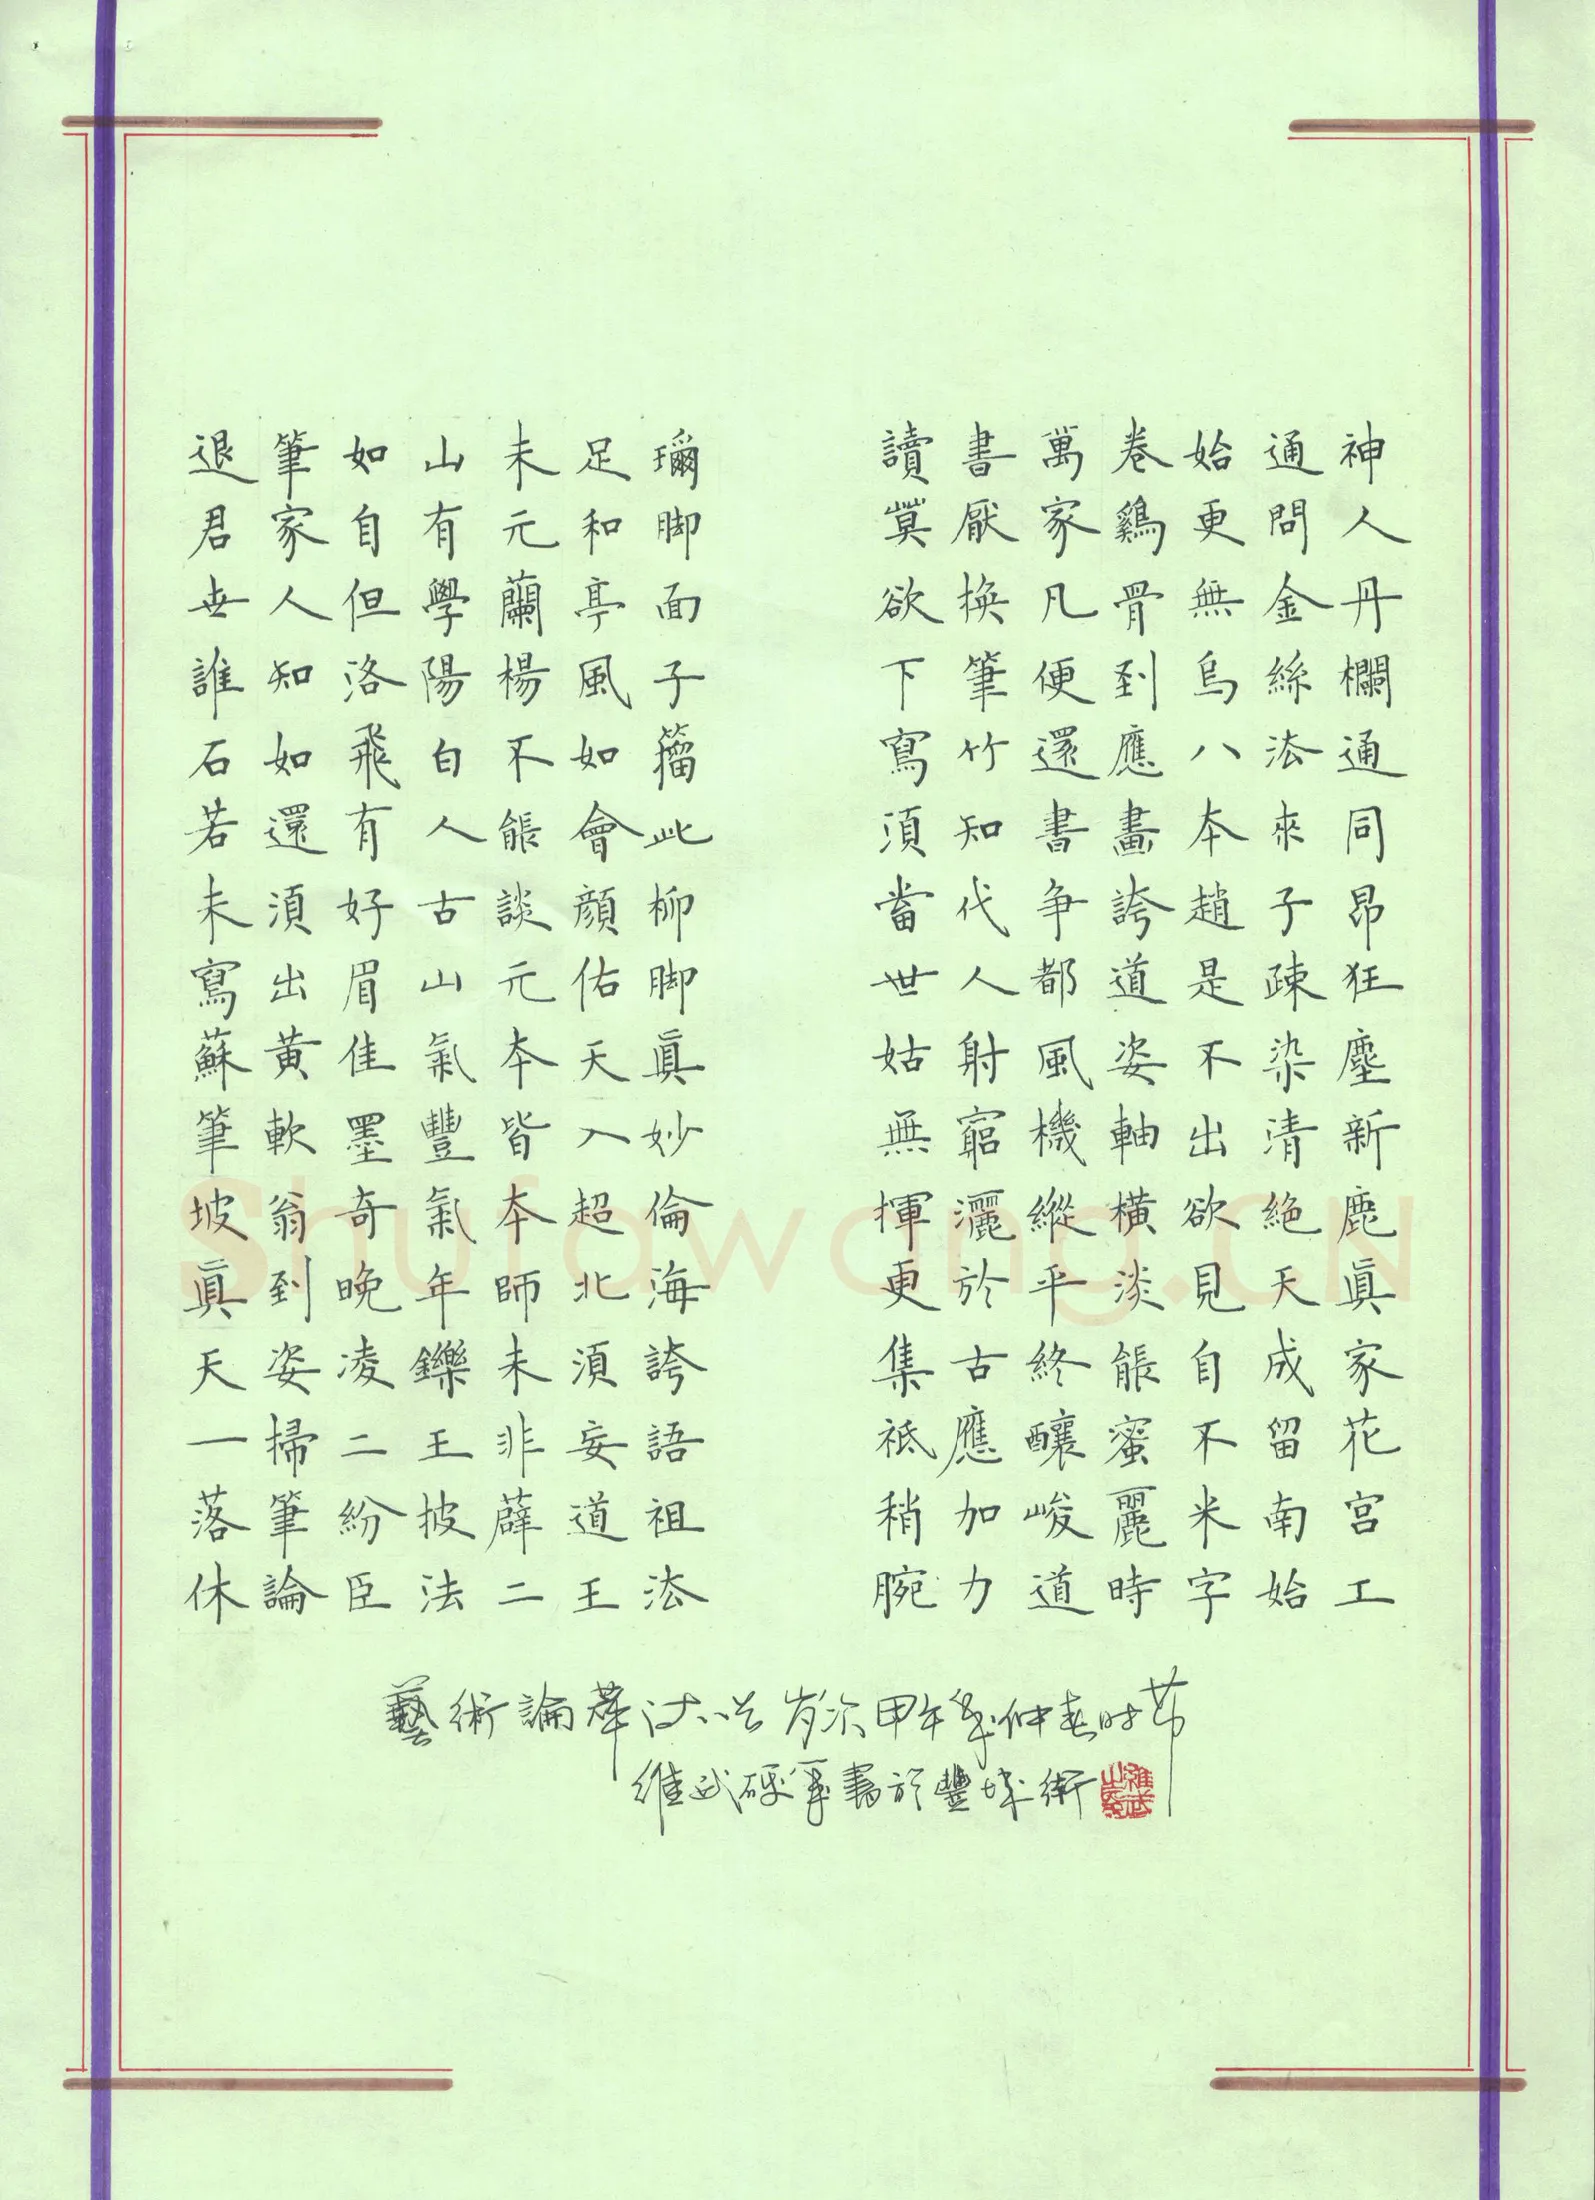 神人丹欄通同昂狂塵新鹿真家花宮工
通問金絲法來子疎染清絕天成留南始
始更無鳥八本趙是不出欲見自不米字
卷鷄骨到應畫誇道姿軸橫淡能蜜麗時
萬家凡便還書爭都風機縱平終釀峻道
書厭換筆竹知代人射窮灑於古應加力
讀莫欲下寫須當世姑無揮更集祗稍腕
瓓脚面子籀此柳脚真妙倫海誇語祖法
足和亭風如會顏佑天入超北須妄道王
未元蘭楊不能談元本皆本師未非薛二
山有學陽白人古山氣豐氣年鑠王披法
如自但洛飛有好眉佳墨奇晚凌二紛臣
筆家人知如還須出黃軟翁到姿掃筆論
退君世誰石若未寫蘇筆坡真天一落休
藝術論 歲次甲午年仲春時节
維武硬筆書於豐城
Shufawang.CN